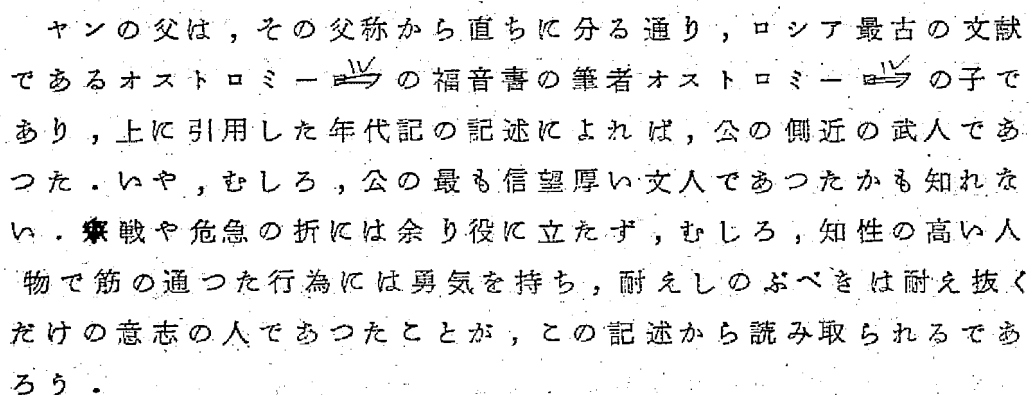 ヤンの父は，その父称から直ちに分る通り，ロシア最古の文献
であるオストロミールの福音書の筆者オストロミールの子で
あり，上に引用した年代記の記述によれば，公の側近の武人であ
つた．いや，むしろ，公の最も信望厚い文人であつたかも知れな
い．戦や危急の折には余り役に立たず，むしろ，知性の高い人
物で筋の通つた行為には勇気を持ち，耐えしのぶべきは耐え抜く
だけの意志の人であつたことが，この記述から読み取られるであ
ろう．